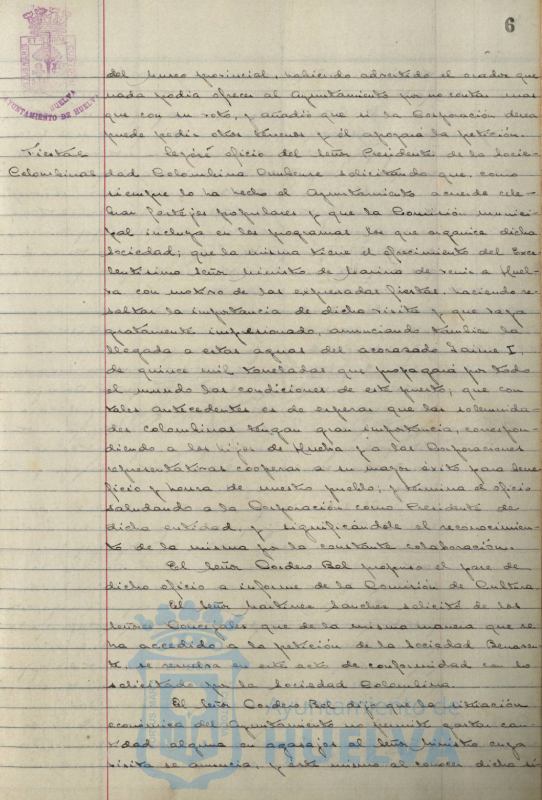 6
AYUNTAMIENTO DE HUELVA
del Museo provincial, habiendo advertido el orador que
nada podia ofrecer al Ayuntamiento por no contar mas
que con su voto, y añadió que si la Corporación desea
puede pedir otros terrenos y él apoyará la petición.
Fiestas
Colombinas
Leyóse oficio del Señor Presidente de la Socie-
dad Colombina Onubense solicitando que, como
siempre lo ha hecho el Ayuntamiento acuerde cele-
brar festejos populares y que la Comisión munici-
pal incluya en los programas los que organice dicha
Sociedad; que la misma tiene el ofrecimiento del Exce-
lentísimo Señor Ministro de Marina de venir a Huel-
va con motivo de las expresadas fiestas, haciendo re-
saltar la importancia de dicha visita y que vaya
gratamente impresionado, anunciando tambien la
llegada a estas aguas del acorazado Jaime I,
de quince mil toneladas que propagará por todo
el mundo las condiciones de este puerto; que con
tales antecedentes es de esperar que las solemnida-
des colombinas tengan gran importancia, correspon-
diendo a los hijos de Huelva y a las Corporaciones
representativas cooperar a su mayor éxito para bene-
ficio y honra de nuestro pueblo; y termina el oficio
saludando a la Corporación como Presidente de
dicha entidad, y significándole el reconocimien-
to de la misma por la constante colaboración.
El Señor Cordero Bel propuso el pase de
dicho oficio a informe de la Comisión de Cultura.
El Señor Martinez Sanchez solicitó de los
Señores Concejales que de la misma manera que se
ha accedido a la petición de la Sociedad
se resuelva en este acto de conformidad con lo
solicitado por la Sociedad Colombina.
El Señor Cordero Bel dijo que la situación
económica del Ayuntamiento no permite gastar can-
tidad alguna en agasajos al Señor Ministro cuya
visita se anuncia, y éste mismo al conocer dicha si-
Ayuntamiento de
HUELVA